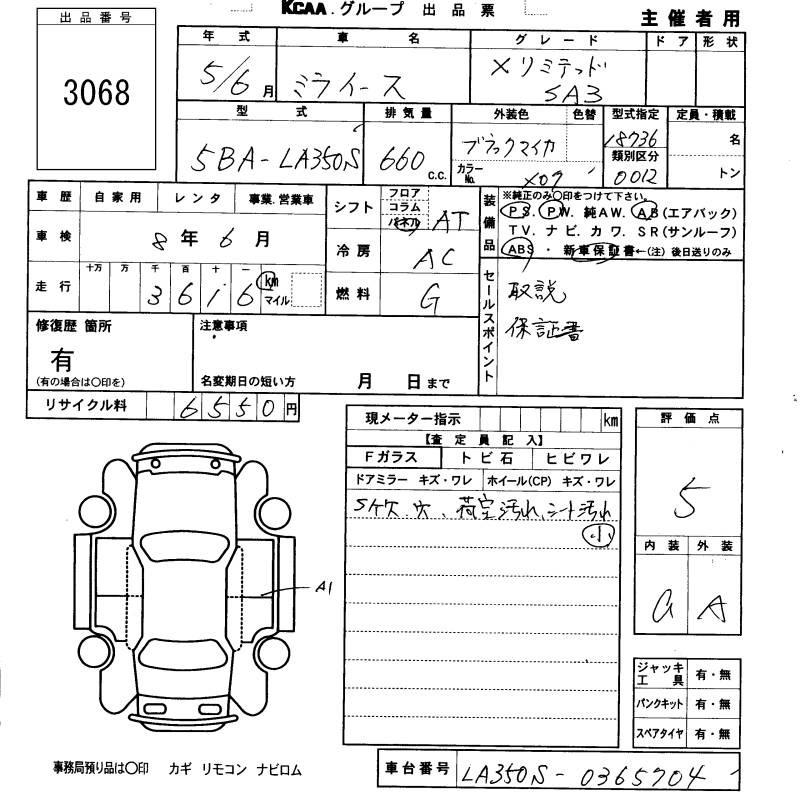 KCAA.グループ 出品票
主催者用
出品番号
3068
年式 車名 グレード ドア 形状
5/6月 ミライース Xリミテッド
SA3
型式 排気量 外装色 色替 型式指定 定員・積載
5BA-LA350S 660 c.c. ブラックマイカ 18736 名
カラーNo. X07 類別区分 0012 トン
車歴 自家用 レンタ 事業.営業車
シフト フロア コラム パネル AT
装備品 ※純正のみ○印をつけて下さい。
PS. PW. 純AW. AB(エアバック)
TV. ナビ. カワ. SR(サンルーフ)
ABS ・ 新車保証書←(注)後日送りのみ
車検 8年6月
冷房 AC
走行 十万 万 千 百 十 一
3616 km マイル
燃料 G
セールスポイント
取説
保証書
修復歴 箇所
有
(有の場合は○印を)
注意事項
名変期日の短い方 月 日まで
リサイクル料 6550円
現メーター指示 km
【査定員記入】
Fガラス トビ石 ヒビワレ
ドアミラー キズ・ワレ ホイール(CP) キズ・ワレ
Sケ欠.穴、荷室汚れ、シート汚れ
小
評価点
5
内装 外装
G A
A1
ジャッキ工具 有・無
パンクキット 有・無
スペアタイヤ 有・無
事務局預り品は○印 カギ リモコン ナビロム
車台番号 LA350S-0365704